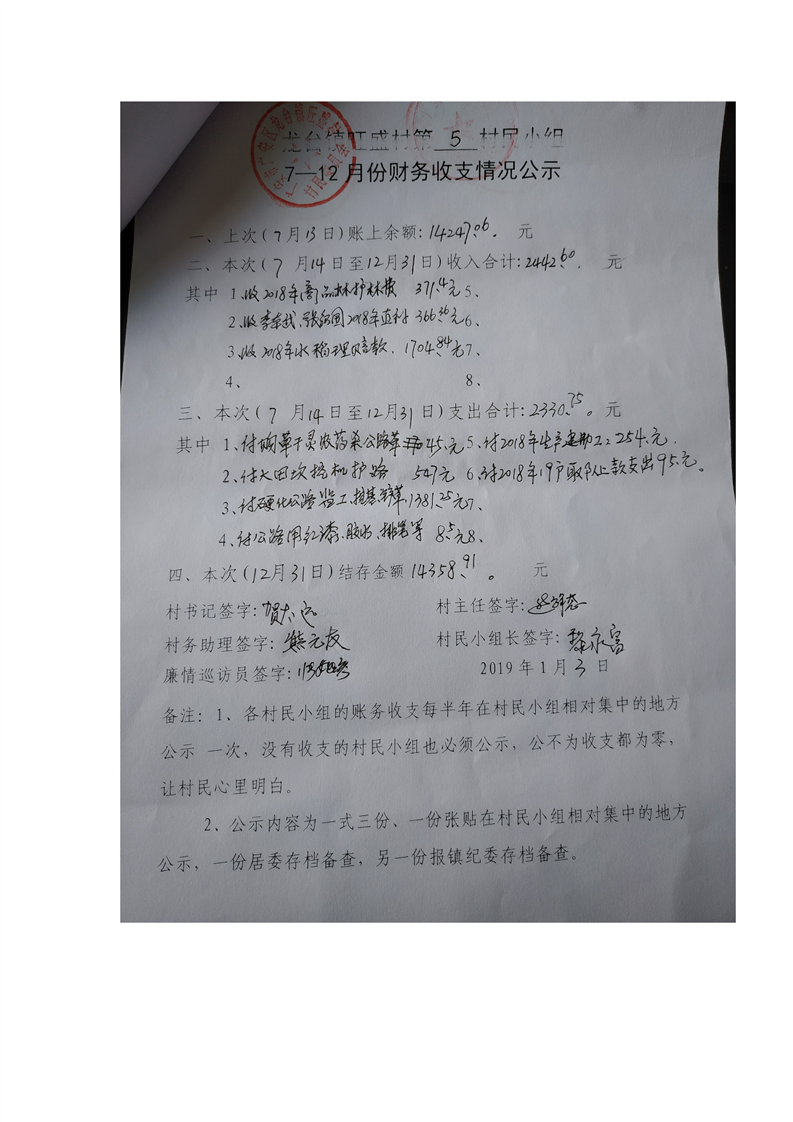 龙台镇旺盛村第 5 村民小组
7—12月份财务收支情况公示
一、上次(7月13日)账上余额:14247.06. 元
二、本次(7 月14日至12月31日)收入合计:2442.60. 元
其中 1、收2018年商品林护林费 371.4元 5、
2、收李 2018年 366.36元 6、
3、收2018年水稻理赔款. 1704.84元 7、
4、 8、
三、本次(7 月14日至12月31日)支出合计:2330.75。元
其中 1、付购草干灵农药杀公路草 45元 5、付2018年生产 工:254元.
2、付大田坎挖机护路 547元 6、付2018年19户取 款支出95元。
3、付硬化公路监工, 1381.25元 7、
4、付公路用红漆、胶水、排笔等 8.5元 8、
四、本次(12月31日)结存金额14358.91。 元
村书记签字: 村主任签字:
村务助理签字:熊元友 村民小组长签字:黎永富
廉情巡访员签字: 2019年1月3日
备注:1、各村民小组的账务收支每半年在村民小组相对集中的地方
公示 一次,没有收支的村民小组也必须公示,公不为收支都为零,
让村民心里明白。
2、公示内容为一式三份、一份张贴在村民小组相对集中的地方
公示,一份居委存档备查,另一份报镇纪委存档备查。